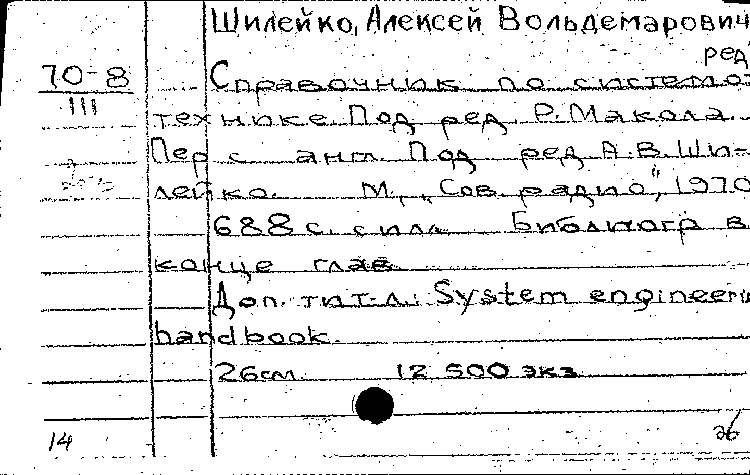 Шилейко, Алексей Вольдемарович
ред
70-8
III
Справочник по системо-
технике. Под ред. Р. Макола.
Пер с англ. Под ред А.В. Ши-
лейко. М., „Сов. радио", 1970
688 с. с илл. Библиогр в
конце глав
Доп. тит. л.: System engineerin
handbook.
26 см. 12 500 экз
14